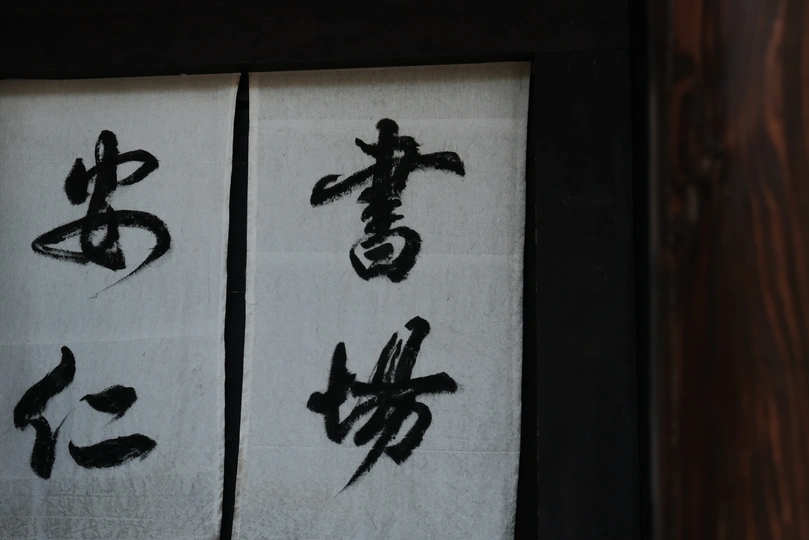 書場
安仁